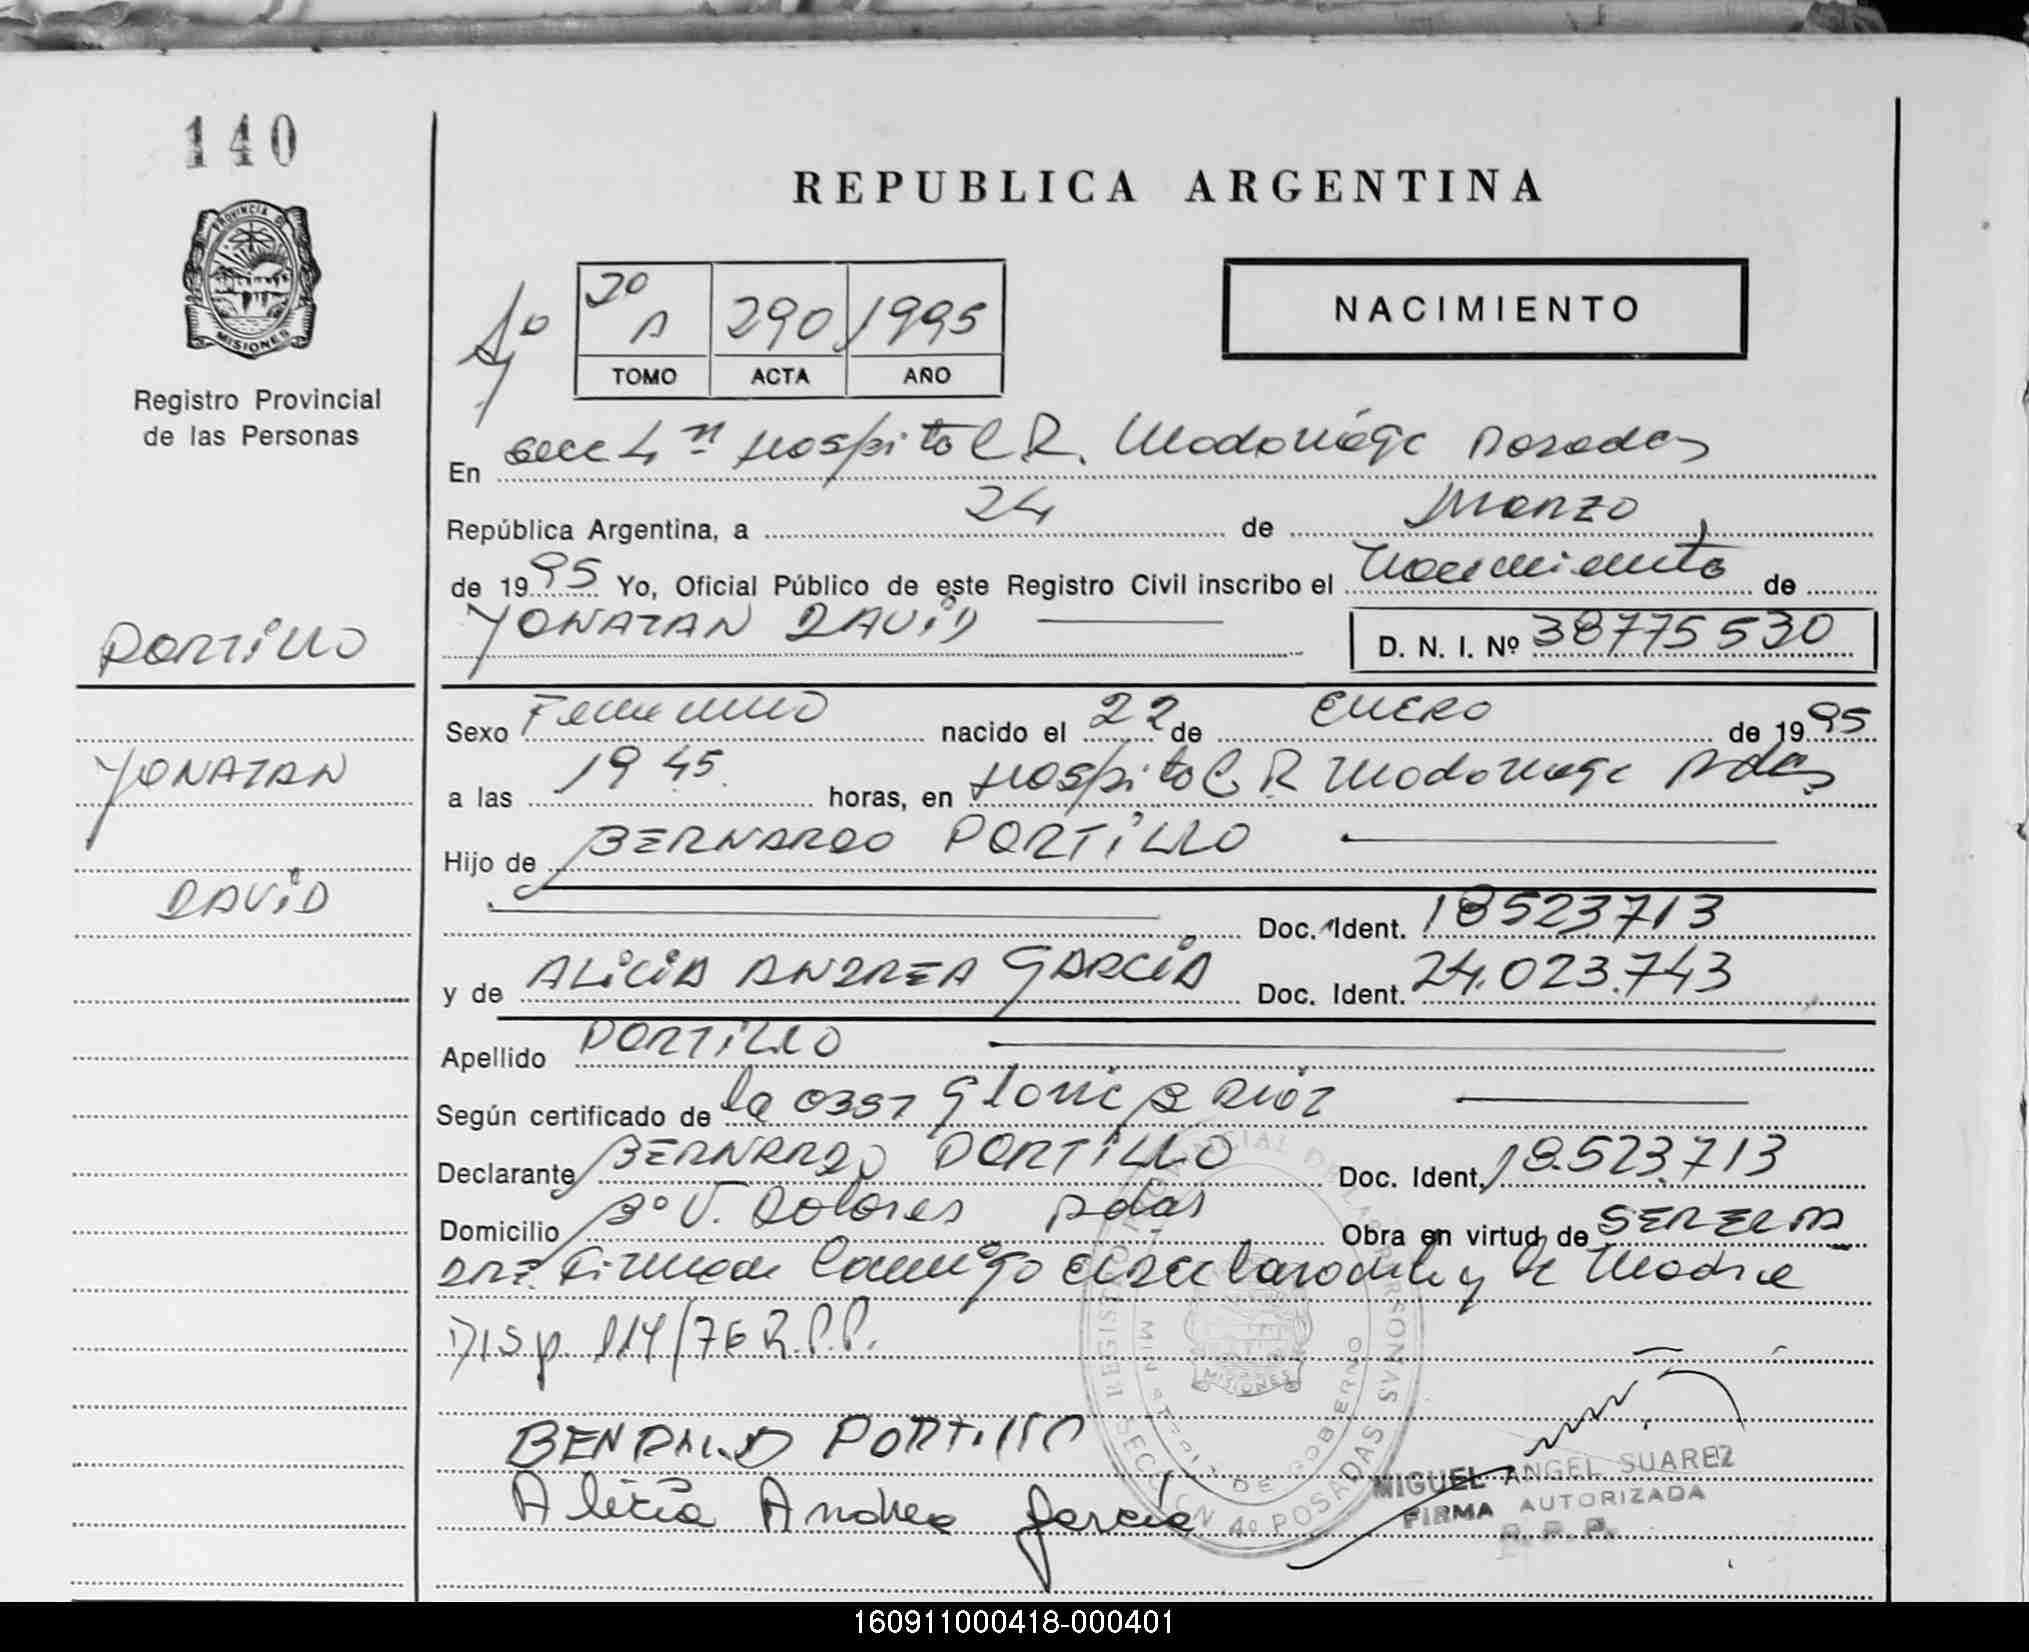 140
PROVINCIA DE
MISIONES
Registro Provincial
de las Personas
REPUBLICA ARGENTINA
2º A 290 1995
TOMO ACTA AÑO
NACIMIENTO
En secc 4ª Hospital R. Madariaga Posadas
República Argentina, a 24 de Marzo
de 1995 Yo, Oficial Público de este Registro Civil inscribo el Nacimiento de
YONATAN DAVID D. N. I. Nº 38775530
PORTILLO
YONATAN
DAVID
Sexo Femenino nacido el 22 de ENERO de 1995
a las 19 45 horas, en Hospital R Madariaga Pdas
Hijo de BERNARDO PORTILLO
Doc. Ident. 18523713
y de ALICIA ANDREA GARCIA Doc. Ident. 24.023.743
Apellido PORTILLO
Según certificado de la Obst Gloria
Declarante BERNARDO PORTILLO Doc. Ident. 18.523.713
Domicilio Bº V. Dolores Pdas Obra en virtud de SER EL PA
DRE Firman Conmigo el Declarante y la Madre
DISp. 114/76 R.P.P.
BENRALD PORTILLO
Alicia Andrea García
REGISTRO PROVINCIAL DE LAS PERSONAS
MINISTERIO DE GOBIERNO
MISIONES
SECCION 4º POSADAS
MIGUEL ANGEL SUAREZ
FIRMA AUTORIZADA
R. P. P.
160911000418-000401